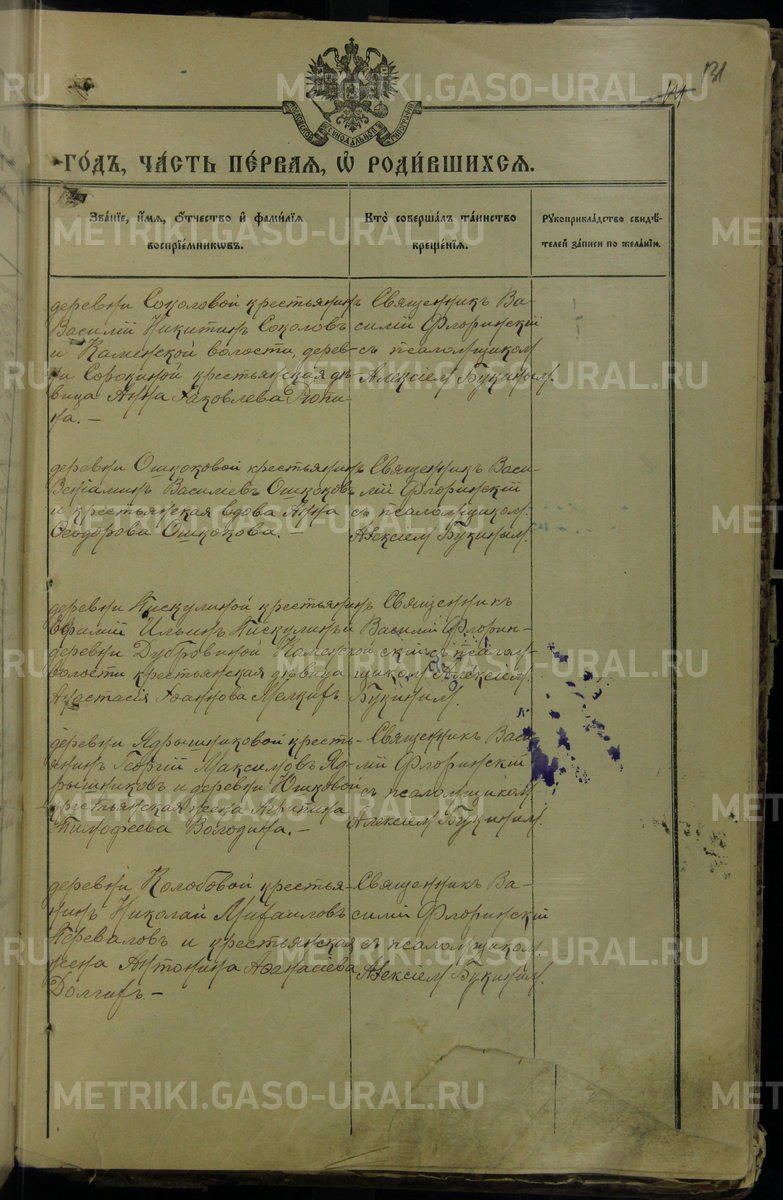 131
ГОДЪ, ЧАСТЬ ПЕРВАЯ, Ѡ РОДИВШИХСЯ.
Званіе, имя, отчество и фамилія воспріемниковъ.
Кто совершалъ таинство крещенія.
Рукоприкладство свидѣтелей записи по желанію.
деревни Соколовой крестьянинъ
Василій Никитинъ Соколовъ
и Каменской волости, дерев-
ни Сорокиной крестьянская дѣ-
вица Анна Іаковлева
на. –
Священникъ Ва-
силій Флоринскій
съ псаломщиком
Алексіем Букиным.
деревни Ошкоковой крестьянинъ
Веніаминъ Василіевъ Ошкоковъ
и крестьянская вдова Анна
Ѳеодорова Ошкокова. –
Священникъ Васи-
лій Флоринскій
съ псаломщиком
Алексіем Букиным.
деревни Пискулиной крестьянинъ
Ильинъ Пискулинъ и
деревни Дубровиной Каменской
волости крестьянская дѣвица
Анастасія Іоаннова Мелкихъ
Священникъ
Василій Флорин-
скій съ псалом-
щиком Алексіем
Букиным.
деревни Ядрышниковой кресть-
янинъ Георгій Максимовъ Яд-
рышниковъ и деревни Юшковой
крестьянская жена
Тимофеева Володина. –
Священникъ Васи-
лій Флоринскій
съ псаломщиком
Алексіем Букиным.
деревни Колобовой крестья-
нинъ Николай Михаиловъ
Перевалов и крестьянская
жена Антонина Аѳанасіева
Долгихъ –
Священникъ Ва-
силій Флоринскій
съ псаломщиком
Алексіем Букиным.
METRIKI.GASO-URAL.RU